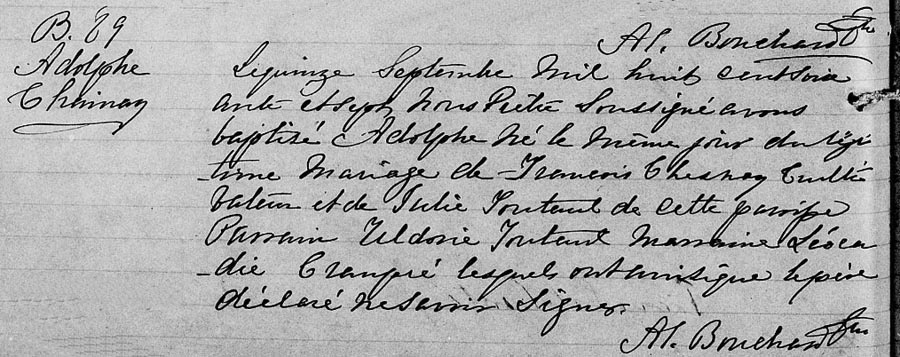 B. 89
Adolphe
Chainay
Al. Bouchard Ptre
Lequinze Septembre Mil huit centsoix
ante etsept Nous Prêtre Soussigné avons
baptisé Adolphe Né le même jour du légi
time Mariage de François Chesnay Culti
vateur et de Julie Toutant de cette paroisse
Parrain Toutant Marraine Léoca
die lesquels ont ainsi le père
déclaré ne savoir Signer.
Al. Bouchard Ptre